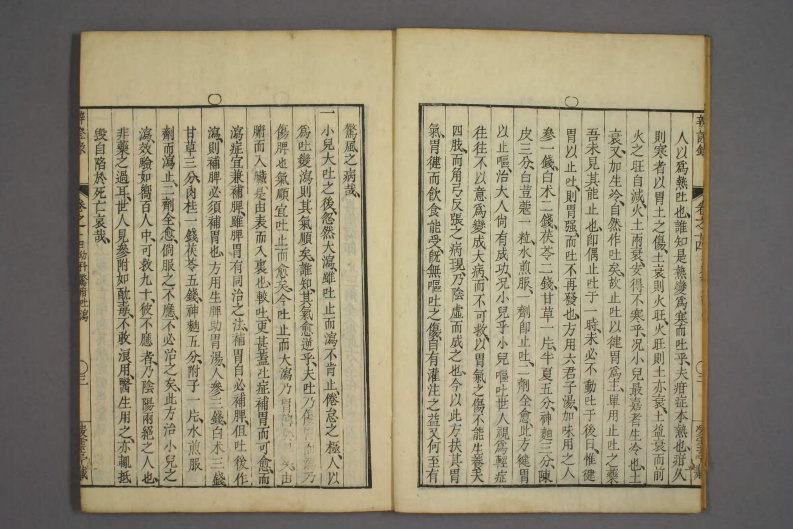 人以爲熱吐也誰知是熱變爲寒而吐乎夫疳症本熱也疳久
則寒者以胃土之傷土衰則火旺火旺則土亦衰土益衰而前
火之旺自減火土兩衰安得不寒乎况小兒最嘉者生冷也土
衰又加生冷自然作吐矣故止吐以健胃爲主單用止吐之藥
吾未見其能止也卽偶止吐于一時未必不動吐于後日惟健
胃以止吐則胃强而吐不再發也方用六君子湯加味用之人
參一錢白术二錢茯苓二錢甘草一片半夏五分神麯三分陳
皮三分白荳蔻一粒水煎服一劑卽止吐二劑全愈此方健胃
以止嘔治大人尙有成功况小兒乎小兒嘔吐世人視爲輕症
往往不以意爲變成大病而不可救以胃氣之傷不能生養夫
四肢而角弓反張之病現乃陰虛而感之也今以此方扶其胃
氣胃健而飮食能受旣無嘔吐之傷自有灌注之益又何至有
驚風之病哉
一小兒大吐之後忽然大瀉雖吐止而瀉不肯止倦怠之極人以
爲吐變瀉則其氣順矣誰知其氣愈逆乎夫吐乃傷胃而瀉乃
傷脾也氣順宜吐止而愈矣今吐止而大瀉乃胃
腑而入臟是由表而入裏也較吐更甚蓋吐症補胃而可愈而
瀉症宜兼補脾雖脾胃有同治之法補胃自必補脾但吐後作
瀉則補脾必須補胃也方用生脾助胃湯人參三錢白术三錢
甘草三分肉桂一錢茯苓五錢神麯五分附子一片水煎服一
劑而瀉止二劑全愈倘服之不應不必治之矣此方治小兒之
瀉效驗如嚮百人中可救九十彼不應者乃陰陽兩絕之人也
非藥之過耳世人見參附如酖毒不敢浪用醫生用之亦輒抵
毁自陷於死亡哀哉